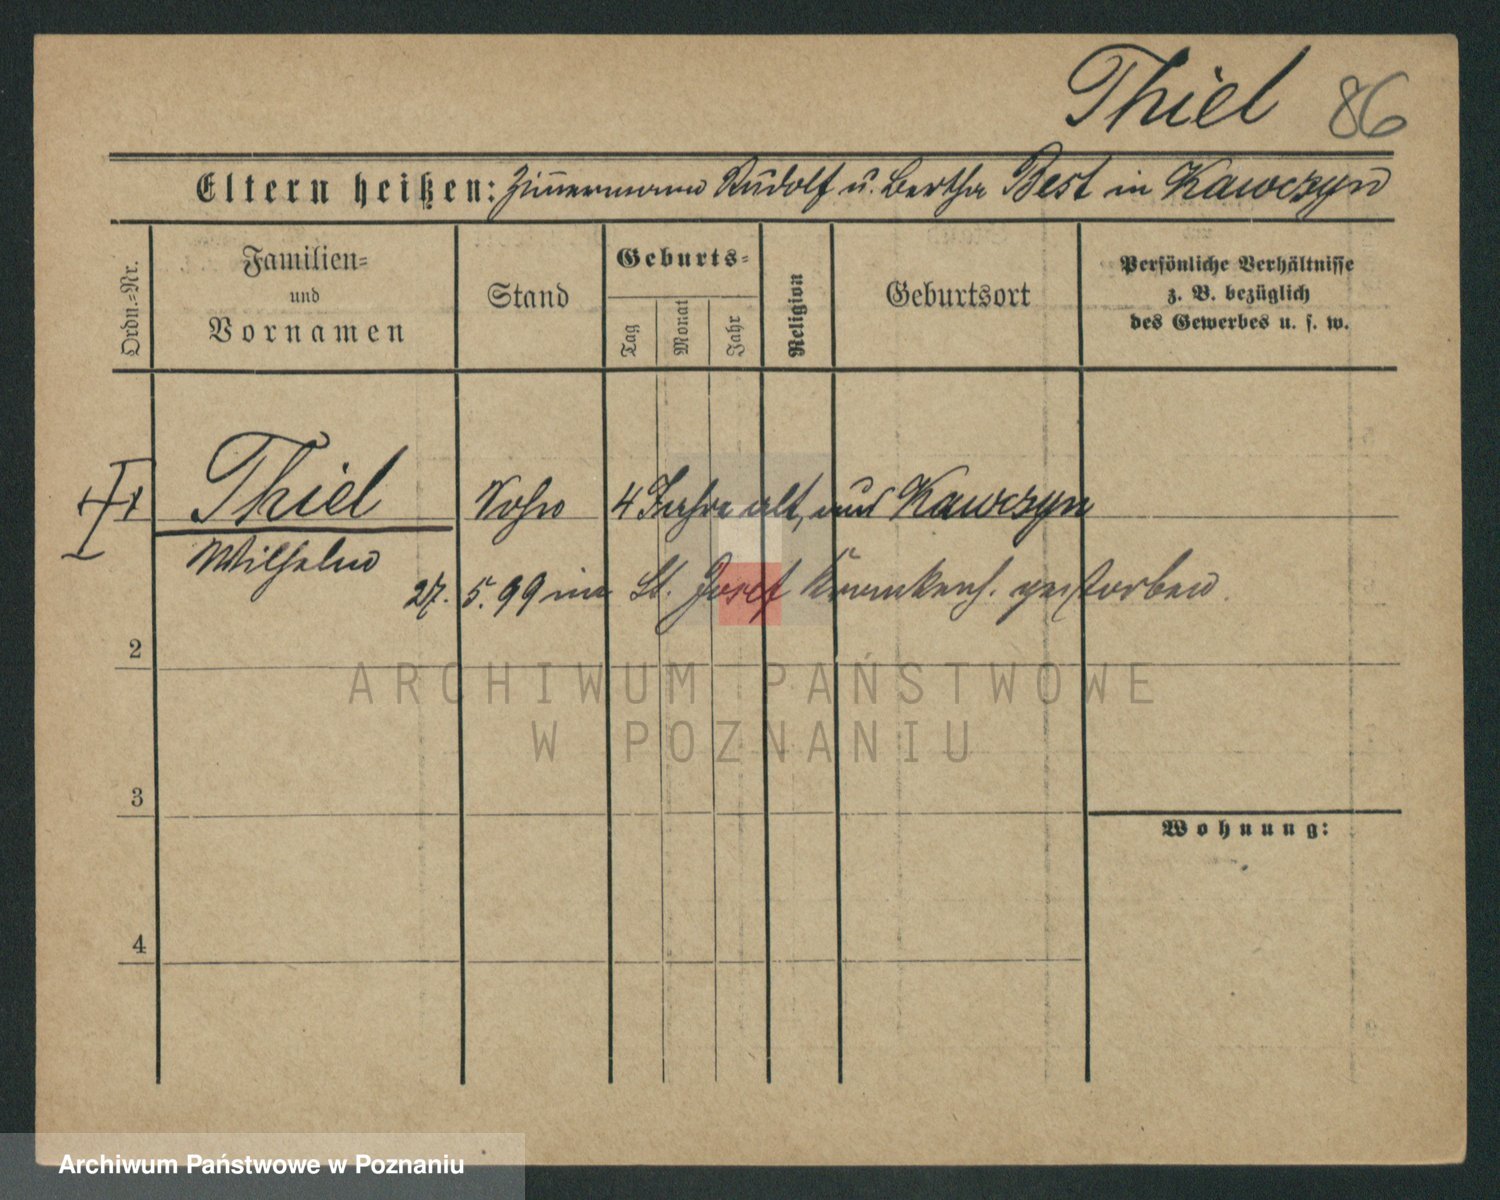 Thiel 86
Eltern heißen: Zimmermann Rudolf u. Bertha Best in Kawczyn
Ordn.=Nr.
Familien=
und
Vornamen
Stand
Geburts=
Tag
Monat
Jahr
Religion
Geburtsort
Persönliche Verhältnisse
z. B. bezüglich
des Gewerbes u. s. w.
Thiel Sohn 4 Jahre alt, aus Kawczyn
Wilhelm
27. 5. 99 im St. Josef Krankenh. gestorben.
2
ARCHIWUM PAŃSTWOWE
W POZNANIU
3
Wohnung:
4
Archiwum Państwowe w Poznaniu